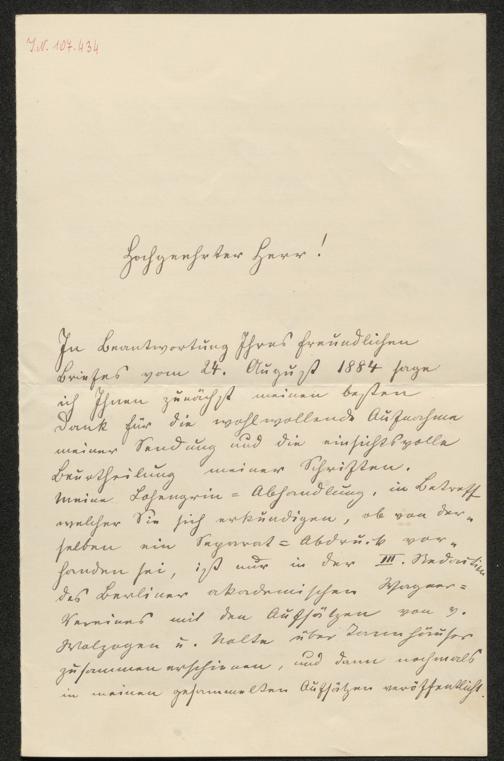 I.N. 107.434
Hochgeehrter Herr!
In Beantwortung Ihres freundlichen
Briefes vom 24. August 1884 sage
ich Ihnen zunächst meinen besten
Dank für die wohlwollende Aufnahme
meiner Sendung und die einsichtsvolle
Beurtheilung meiner Schriften.
Meine Lohengrin=Abhandlung, in Betreff
welcher Sie sich erkundigen, ob von der=
selben ein Separat=Abdruck vor=
handen sei, ist nur in der III.
des Berliner akademischen Wagner=
Vereines mit den Aufsätzen von v.
Wolzogen u. Nolte über Tannhäuser
zusammen erschienen, und dann nochmals
in meinen gesammelten Aufsätzen veröffentlicht.